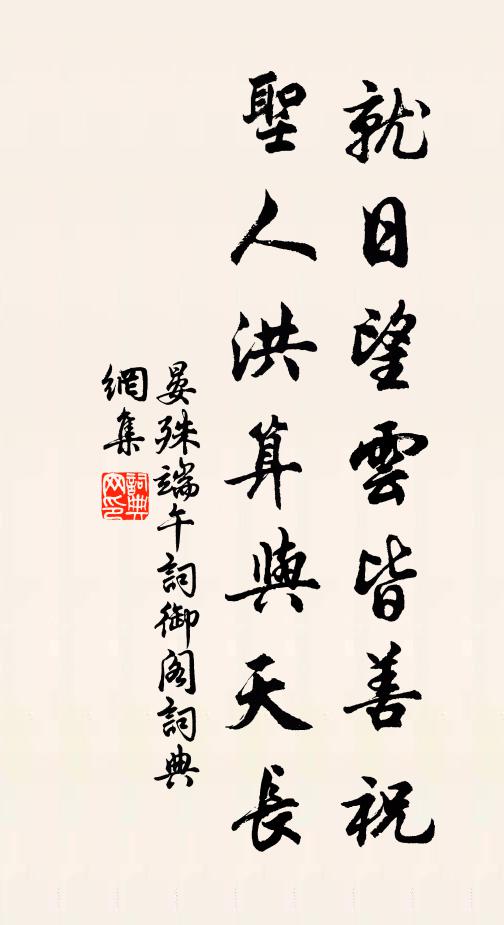 就日望雲皆善祝
聖人洪算與天長
晏殊端午詞御閣詞典
網集
詞典網印